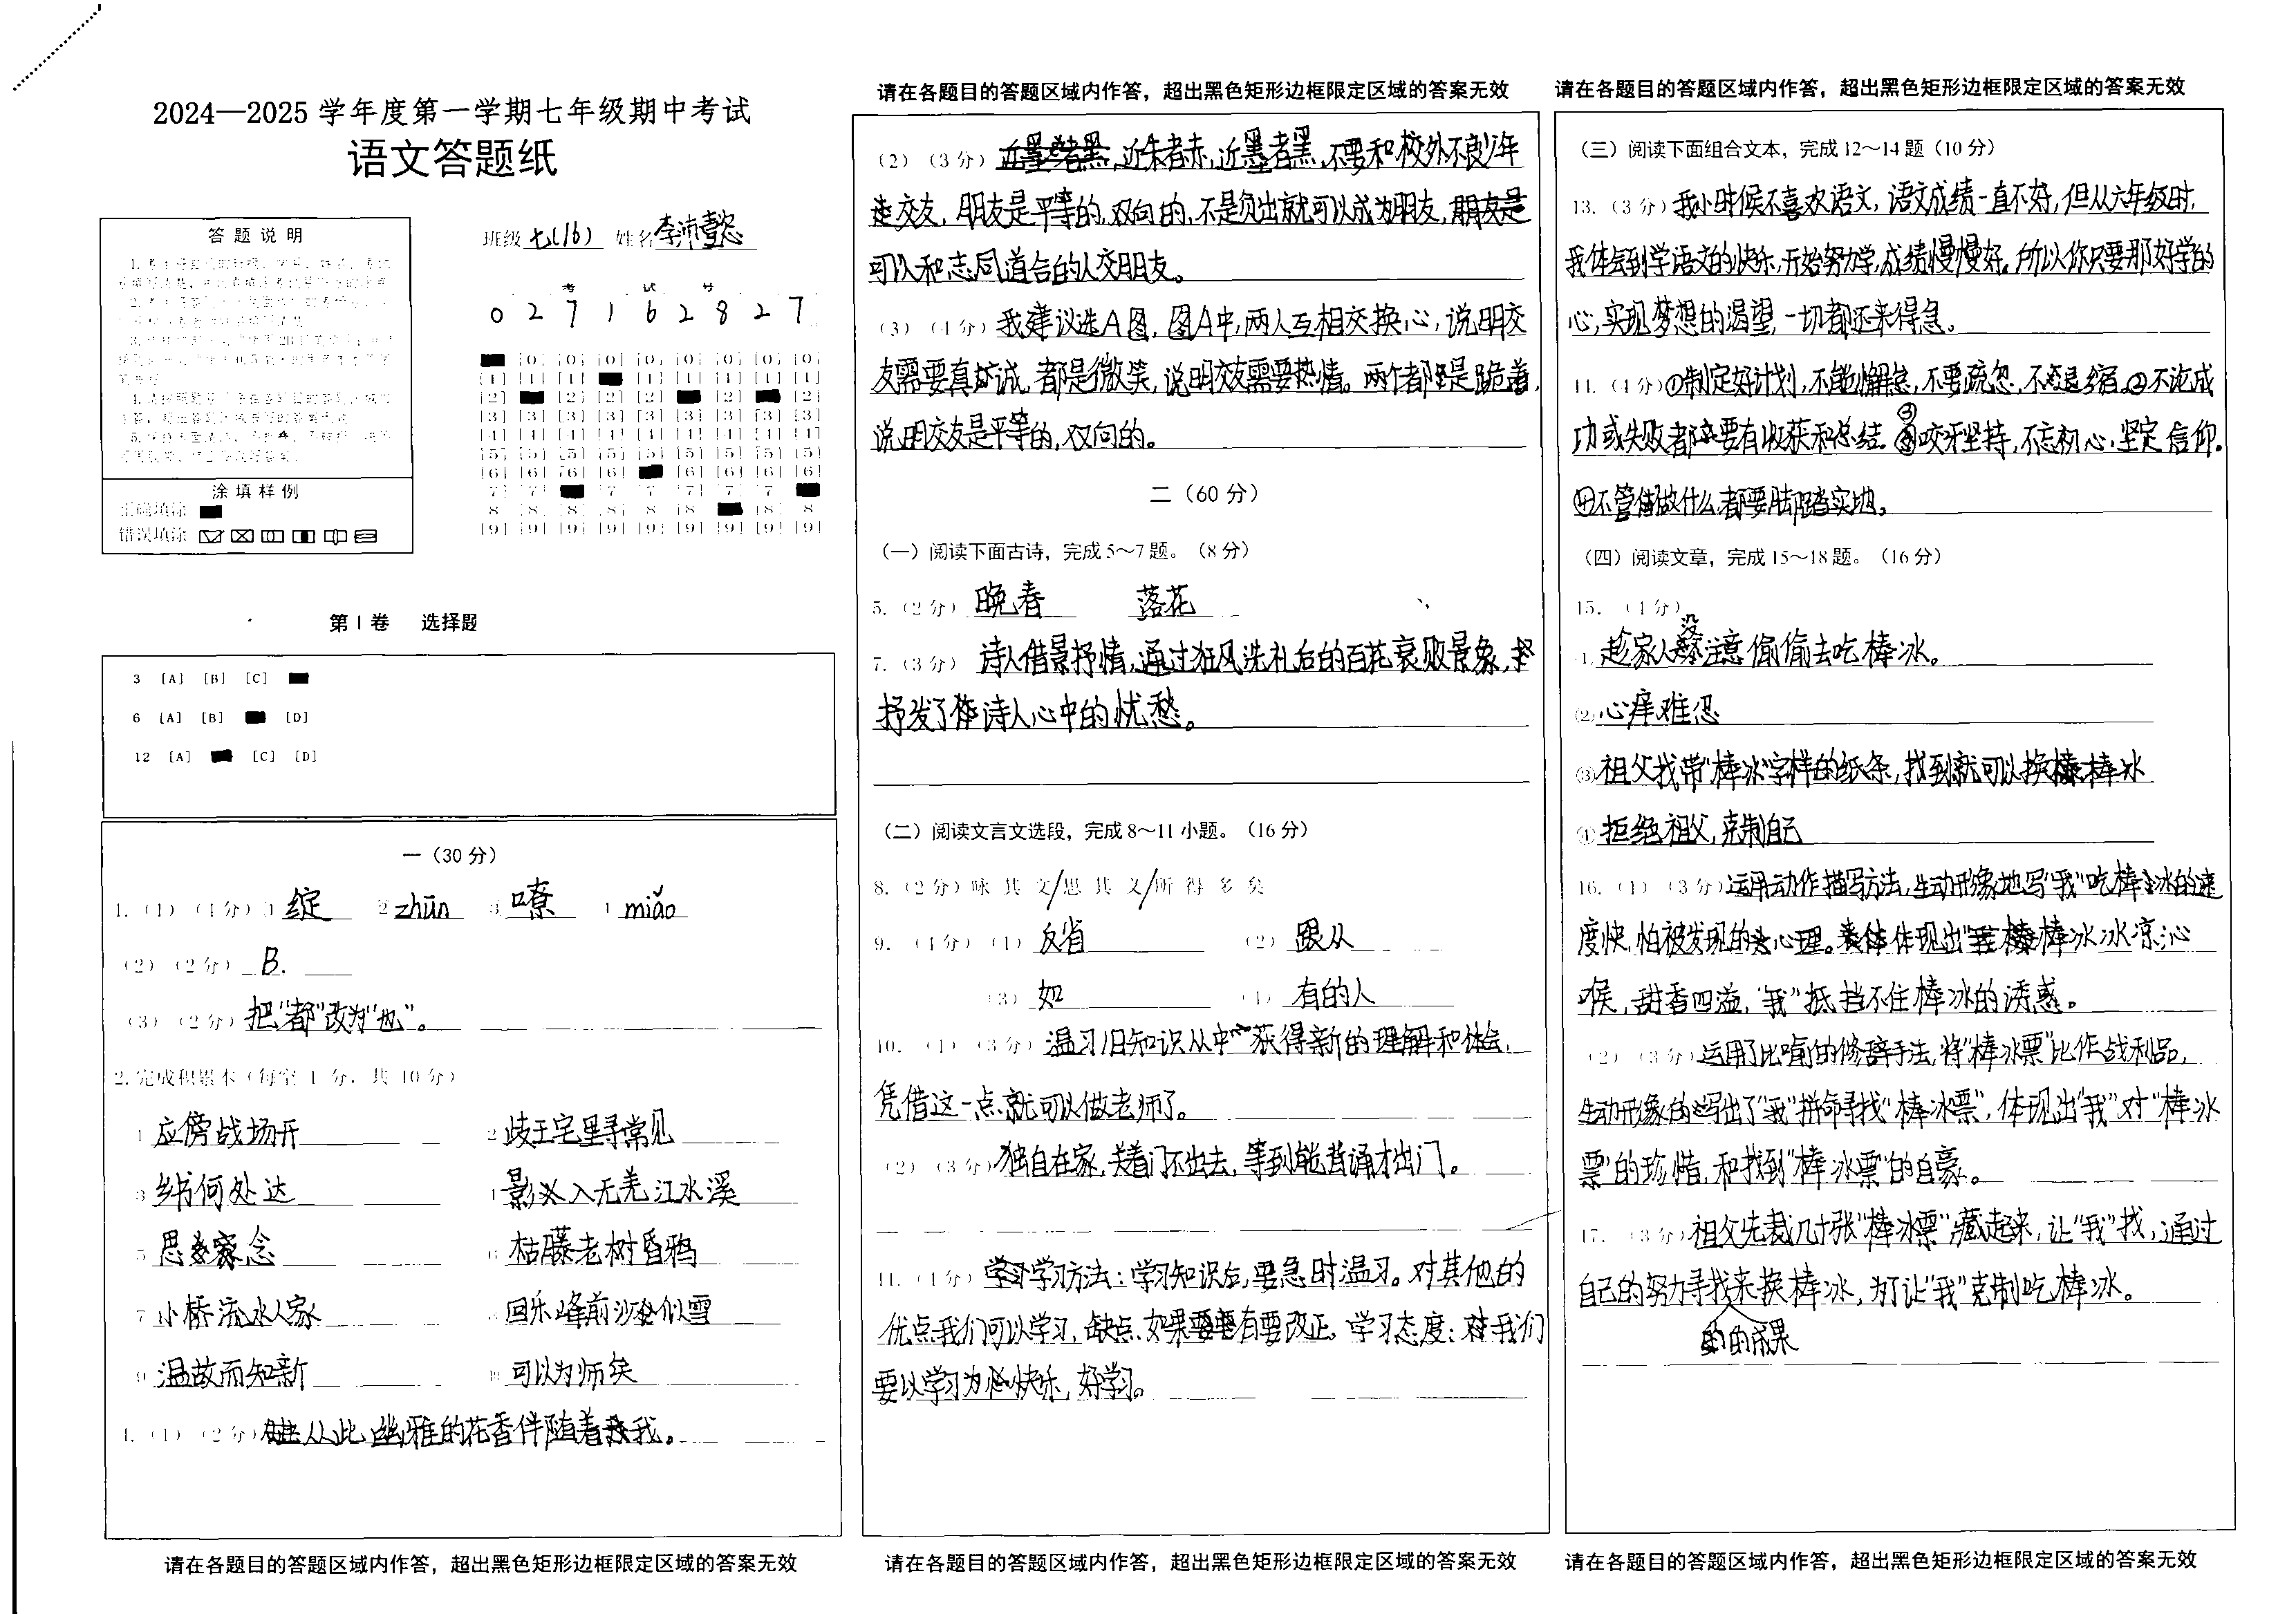 2024—2025 学年度第一学期七年级期中考试
语文答题纸
答题说明
涂填样例
正确填涂
错误填涂
班级 七(16) 姓名 李沛壹恣
考 试 号
0 2 7 1 6 2 8 2 7
[0] [0] [0] [0] [0] [0] [0] [0]
[1] [1] [1] [1] [1] [1] [1] [1]
[2] [2] [2] [2] [2] [2]
[3] [3] [3] [3] [3] [3] [3] [3] [3]
[4] [4] [4] [4] [4] [4] [4] [4] [4]
[5] [5] [5] [5] [5] [5] [5] [5] [5]
[6] [6] [6] [6] [6] [6] [6] [6]
[7] [7] [7] [7] [7] [7] [7]
[8] [8] [8] [8] [8] [8] [8] [8]
[9] [9] [9] [9] [9] [9] [9] [9] [9]
第Ⅰ卷 选择题
3 [A] [B] [C]
6 [A] [B] [D]
12 [A] [C] [D]
一（30 分）
1.（1）（4分）1 绽 2 zhūn 3 嘹 4 miǎo
（2）（2分） B.
（3）（2分）把"都"改为"也"。
2.完成积累本（每空 1 分，共 10 分）
1 应傍战场开 2 歧王宅里寻常见
3 乡书何处达 4 影入无羌江水溪
5 思家念 6 枯藤老树昏鸦
7 小桥流水人家 8 回乐峰前沙似雪
9 温故而知新 10 可以为师矣
4.（1）（2分）从此幽雅的花香伴随着我。
请在各题目的答题区域内作答，超出黑色矩形边框限定区域的答案无效
请在各题目的答题区域内作答，超出黑色矩形边框限定区域的答案无效
（2）（3分）近朱者赤，近墨者黑，不要和校外不良少年
交友，朋友是平等的，双向的，不是负出就可以成为朋友，
可以和志同道合的人交朋友。
（3）（4分）我建议选A图，图A中，两人互相交换心，说明交
友需要真诚，都是微笑，说明交友需要热情。两个都是跪着，
说明交友是平等的，双向的。
二（60 分）
（一）阅读下面古诗，完成 5～7 题。（8 分）
5.（2分） 晚春 落花
7.（3分） 诗人借景抒情，通过狂风洗礼后的百花衰败景象，
抒发了诗人心中的忧愁。
（二）阅读文言文选段，完成 8～11 小题。（16 分）
8.（2分）咏 其 文/思 其 义/所 得 多 矣
9.（4分）（1） 反省 （2） 跟从
（3） 如 （4） 有的人
10.（1）（3分）温习旧知识从中获得新的理解和体会，
凭借这一点就可以做老师了。
（2）（3分）独自在家，关着门不出去，等到能背诵才出门。
11.（4分）学习方法：学习知识后，要急时温习。对其他的
优点我们可以学习，缺点，如果有要改正。学习态度：我们
要以学习为快乐，好学习。
请在各题目的答题区域内作答，超出黑色矩形边框限定区域的答案无效
请在各题目的答题区域内作答，超出黑色矩形边框限定区域的答案无效
（三）阅读下面组合文本，完成 12～14 题（10 分）
13.（3分）我小时候不喜欢语文，语文成绩一直不好，但从六年级时，
我体会到学语文的快乐，开始努力学，成绩慢慢好。所以你只要那好学的
心，实现梦想的渴望，一切都还来得急。
14.（4分）①制定好计划，不能懈怠，不要疏忽，不退缩。②不论成
功或失败都要有收获和总结。③咬牙坚持，不忘初心，坚定信仰。
④不管做什么，都要脚踏实地。
（四）阅读文章，完成 15～18 题。（16 分）
15.（4分）
① 趁家人没注意偷偷去吃棒冰。
② 心痒难忍
③ 祖父找带"棒冰"字样的纸条，找到就可以换棒冰
④ 拒绝祖父，克制自己
16.（1）（3分）运用动作描写方法，生动形象地写"我"吃棒冰的速
度快，怕被发现的心理。体现出棒冰冰凉沁
喉，甜香四溢，"我"抵挡不住棒冰的诱惑。
（2）（3分）运用了比喻的修辞手法，将"棒冰票"比作战利品，
生动形象的写出了"我"拼命寻找"棒冰票"，体现出"我"对"棒冰
票"的珍惜，和找到"棒冰票"的自豪。
17.（3分）祖父先裁几十张"棒冰票"藏起来，让"我"找，通过
自己的努力寻找的成果来换棒冰，为了让"我"克制吃棒冰。
请在各题目的答题区域内作答，超出黑色矩形边框限定区域的答案无效